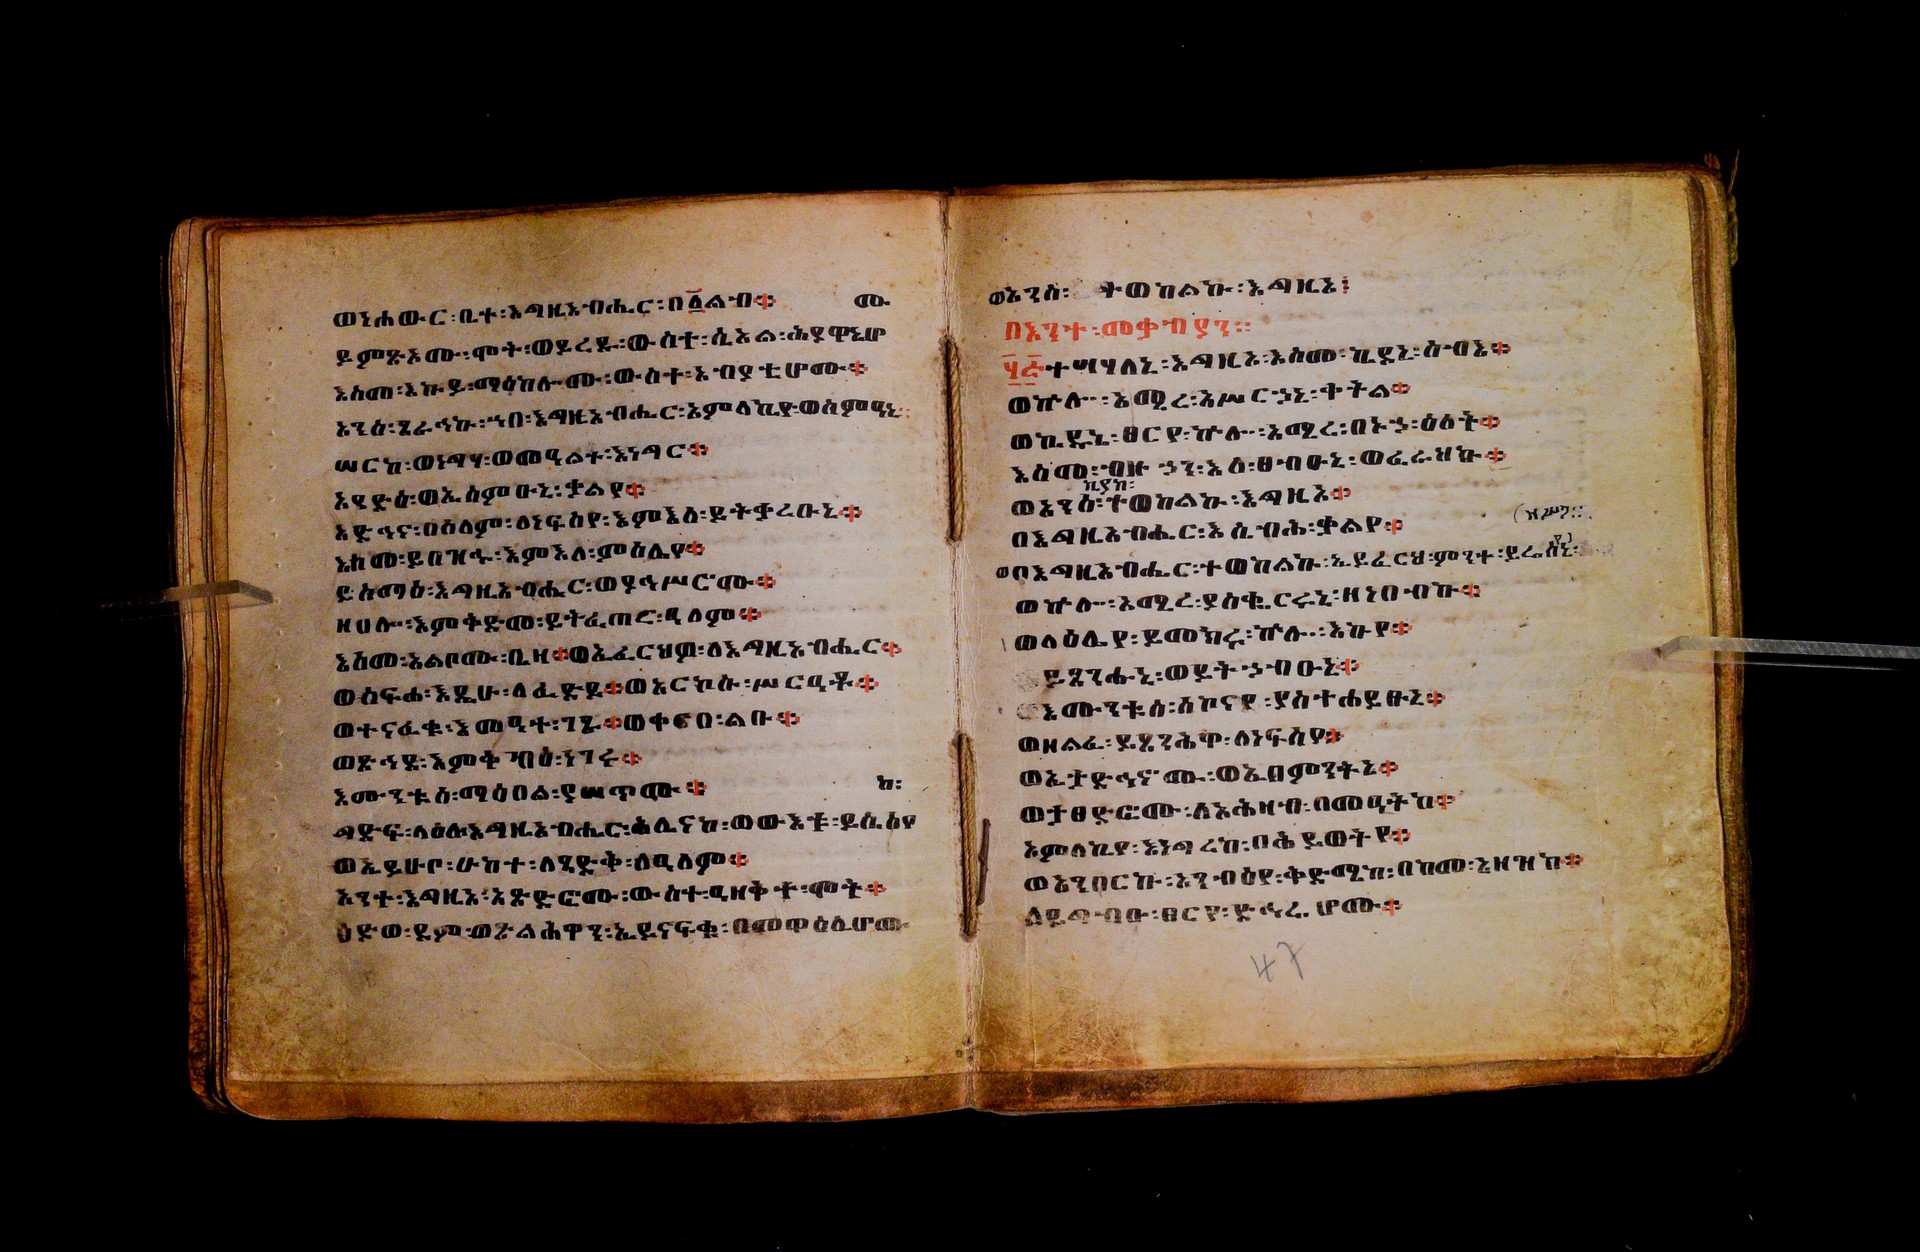 ወነሐውር፡ቤተ፡እግዚአብሔር፡በ፩ልብ፨ ሙ
ይምጽኦሙ፡ሞት፡ወይረዱ፡ውስተ፡ሲኦል፡ሕያዋኒሆ
እስመ፡እኩይ፡ማዕከሎሙ፡ውስተ፡አብያቲሆሙ፨
አንሰ፡ጸራኅኩ፡ኀበ፡እግዚአብሔር፡አምላኪየ፡ወሰምዐኒ፡፡
ሠርከ፡ወነግሃ፡ወመዓልተ፡እነግር፨
አየድዕ፡ወኢሰምዑኒ፡ቃልየ፨
አድኅና፡በሰላም፡ለነፍስየ፡እምእለ፡ይትቃረቡኒ፨
እስመ፡ይበዝኁ፡እምእለ፡ምስሌየ፨
ይሰማዕ፡እግዚአብሔር፡ወያኀሥርሙ፨
ዘሀሎ፡እምቅድመ፡ይትፈጠር፡ዓለም፨
እስመ፡አልቦሙ፡ቤዛ፨ወኢፈርህዎ፡ለእግዚአብሔር፨
ወሰፍሐ፡እዴሁ፡ለፈድይ፨ወአርኰሱ፡ሥርዓቶ፨
ወተናፈቁ፡እመዓተ፡ገጹ፨ወቀርበ፡ልቡ፨
ወጽኅደ፡እምቅብዕ፡ነገሩ፨
እሙንቱሰ፡ማዕበል፡ያሠጥሙ፨ ከ፡
ግድፍ፡ላዕለ፡እግዚአብሔር፡ሕሊናከ፡ወውእቱ፡ይሴስየ
ወኢይሁቦ፡ሁከተ፡ለጻድቅ፡ለዓለም፨
አንተ፡እግዚኦ፡አጽድፎሙ፡ውስተ፡ዓዘቅተ፡ሞት፨
ዕድወ፡ደም፡ወጽልሕዋን፡ኢይናፍቁ፡በመዋዕሊሆሙ
ወአንሰ፡ተወከልኩ፡እግዚኦ፡
በእንተ፡መቃብያን፡፡
፶፭ተሣሃለኒ፡እግዚኦ፡እስመ፡ኬደኒ፡ሰብእ፨
ወኵሎ፡አሚረ፡አሥርኃኒ፡ቀትል፨
ወኬዱኒ፡ፀርየ፡ኵሎ፡አሚረ፡በኑኃ፡ዕለት፨
እስመ፡ብዙኃን፡እለ፡ፀብዑኒ፡ወፈራህኩ፨
ኪያከ፡
ወአንሰ፡ተወከልኩ፡እግዚኦ፨
በእግዚአብሔር፡እሴብሕ፡ቃልየ፨
(ዝሥጋ፡፡
ወበእግዚአብሔር፡ተወከልኩ፡ኢይፈርህ፡ምንተ፡ይሬስየኒ፡
ወኵሎ፡አሚረ፡ያስቆርሩኒ፡ዘነበብኩ፨
ወላዕሌየ፡ይመክሩ፡ኵሎ፡እኩየ፨
ይጸንሑኒ፡ወይትኃብዑኒ፨
እሙንቱሰ፡ሰኰናየ፡ያስተሐይፁኒ፨
ወዘልፈ፡ይጸንሕዋ፡ለነፍስየ፨
ወኢታድኅኖሙ፡ወኢበምንትኒ፨
ወታፀድፎሙ፡ለአሕዛብ፡በመዓትከ፨
አምላኪየ፡እነግረከ፡በሕይወትየ፨
ወአንበርኩ፡አንብዕየ፡ቅድሜከ፡በከመ፡አዘዝከ፨
ለይግብኡ፡ፀርየ፡ድኅሬሆሙ፨
47